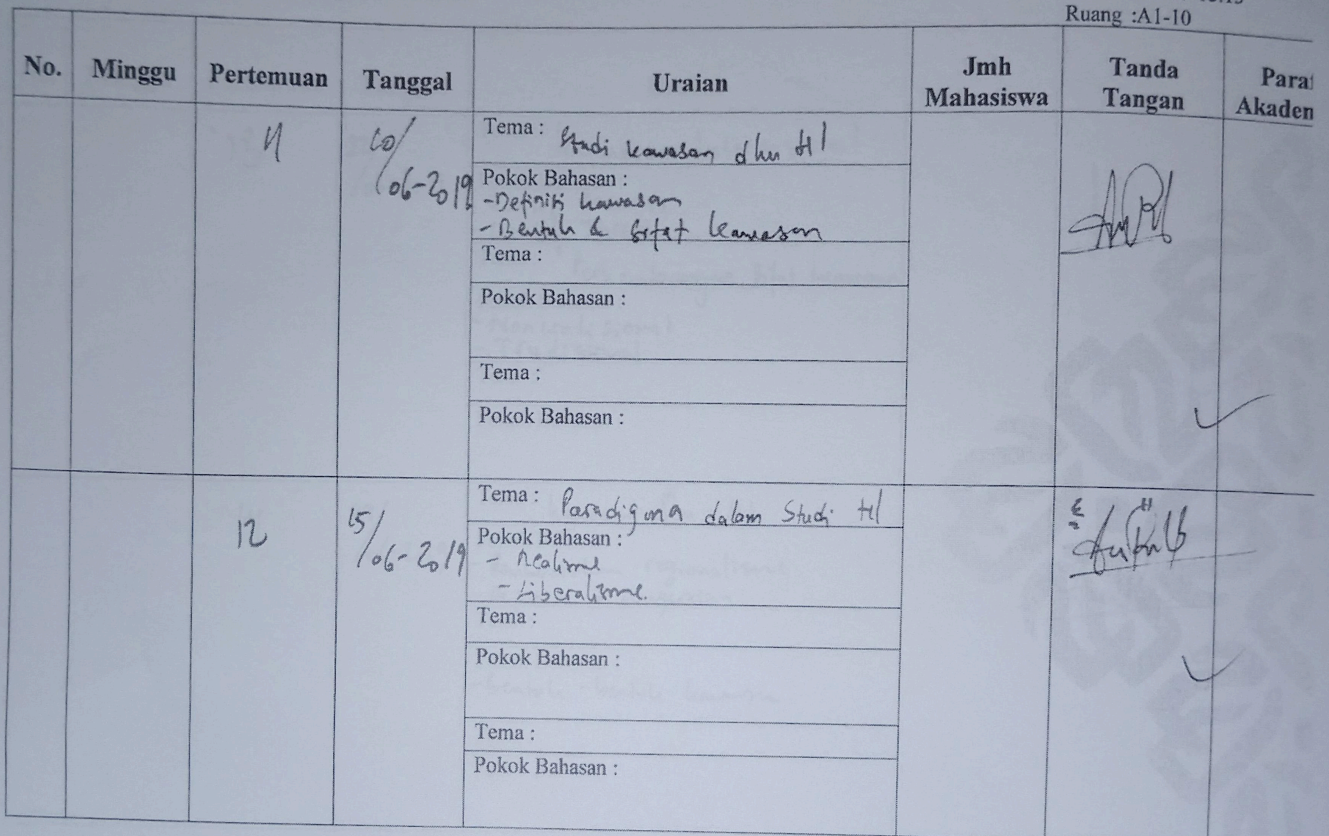 Ruang :A1-10
No. Minggu Pertemuan Tanggal Uraian Jmh Mahasiswa Tanda Tangan Paraf Akadem
11 10/06-2019
Tema : Studi kawasan dlm HI
Pokok Bahasan :
-Definisi kawasan
-Bentuk & sifat kawasan
Tema :
Pokok Bahasan :
Tema :
Pokok Bahasan :
12 15/06-2019
Tema : Paradigma dalam Studi HI
Pokok Bahasan :
- Realisme
- Liberalisme.
Tema :
Pokok Bahasan :
Tema :
Pokok Bahasan :